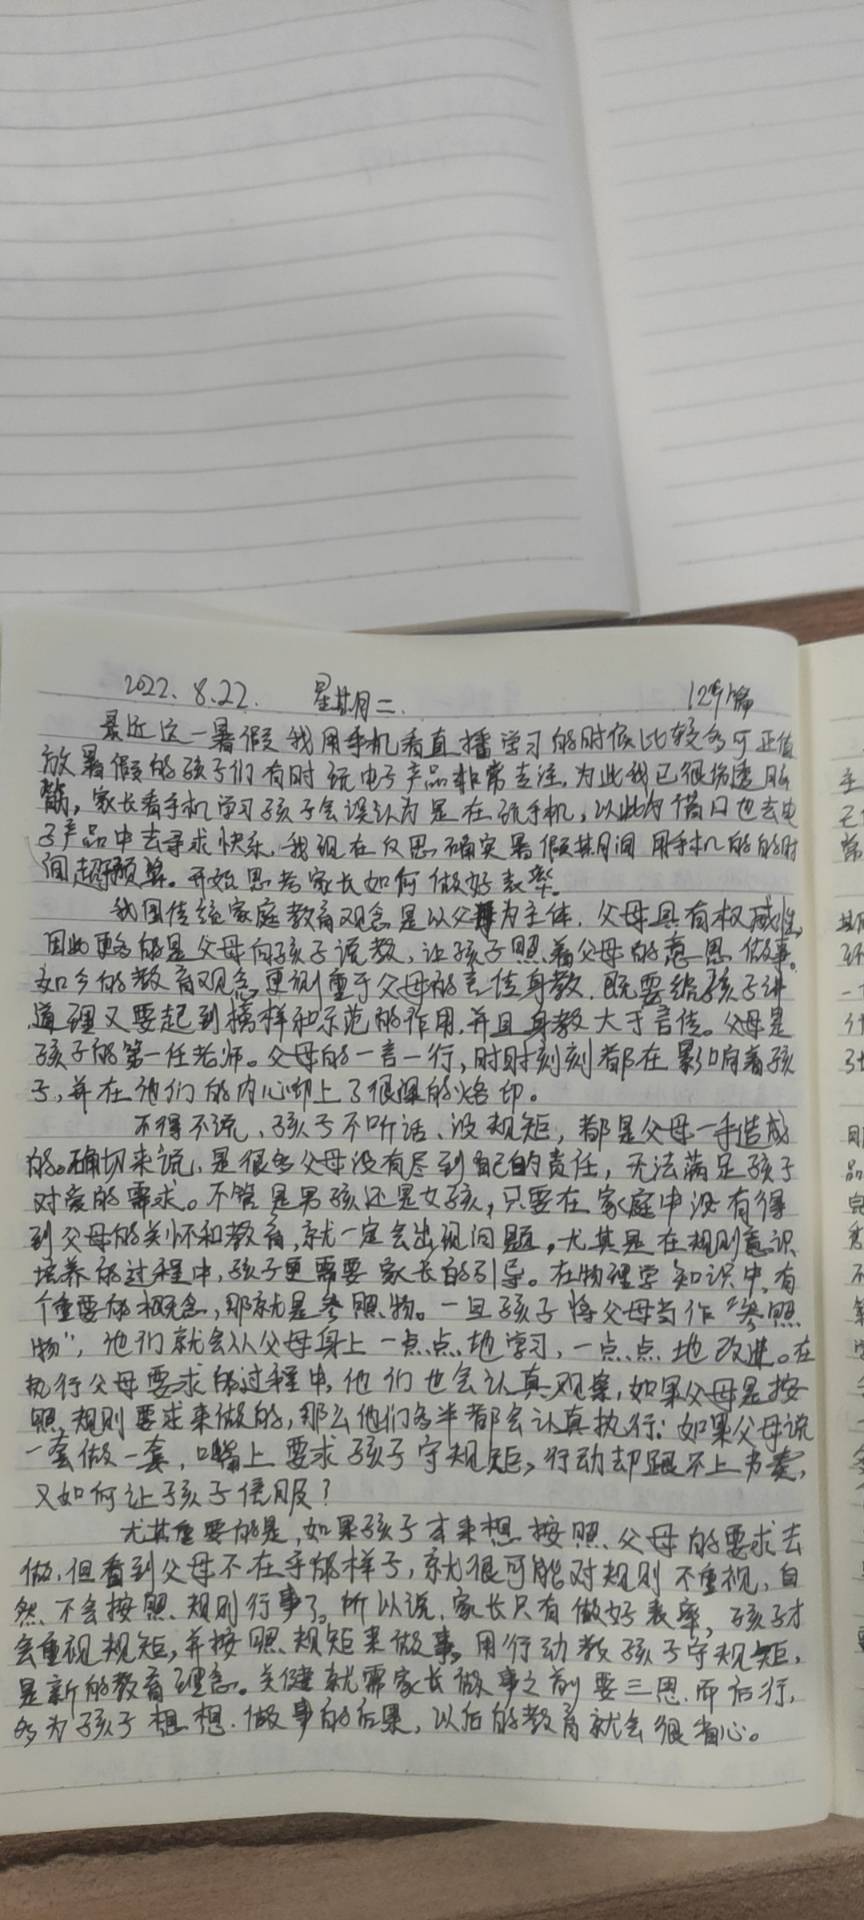 2022. 8.22. 星期二. 129篇
最近这一暑假我用手机看直播学习的时候比较多可正值
放暑假的孩子们有时玩电子产品非常专注,为此我已很伤透脑
筋,家长看手机学习孩子会误认为是在玩手机,以此为借口也去电
子产品中去寻求快乐,我现在反思确实暑假其间用手机的的时
间超预算。开始思考家长如何做好表率。
我国传统家庭教育观念是以父母为主体,父母具有权威性,
因此更多的是父母向孩子说教,让孩子照着父母的意思做事。
如今的教育观念更侧重于父母的言传身教,既要给孩子讲
道理又要起到榜样和示范的作用,并且身教大于言传。父母是
孩子的第一任老师。父母的一言一行,时时刻刻都在影响着孩
子,并在他们的内心印上了很深的烙印。
不得不说、孩子不听话、没规矩,都是父母一手造成
的。确切来说,是很多父母没有尽到自己的责任,无法满足孩子
对爱的需求。不管是男孩还是女孩,只要在家庭中没有得
到父母的关怀和教育,就一定会出现问题,尤其是在规则意识
培养的过程中,孩子更需要家长的引导。在物理学知识中,有
个重要的概念,那就是参照物。一旦孩子将父母当作“参照
物”,他们就会从父母身上一点点地学习,一点点地改进。在
执行父母要求的过程中,他们也会认真观察,如果父母是按
照规则要求来做的,那么他们多半都会认真执行;如果父母说
一套做一套,口嘴上要求孩子守规矩,行动却跟不上节奏,
又如何让孩子信服?
尤其重要的是,如果孩子本来想按照父母的要求去
做,但看到父母不在乎的样子,就很可能对规则不重视,自
然不会按照规则行事了。所以说,家长只有做好表率,孩子才
会重视规矩,并按照规矩来做事。用行动教孩子守规矩,
是新的教育理念。关健就需家长做事之前要三思而后行,
多为孩子想想,做事的后果,以后的教育就会很省心。